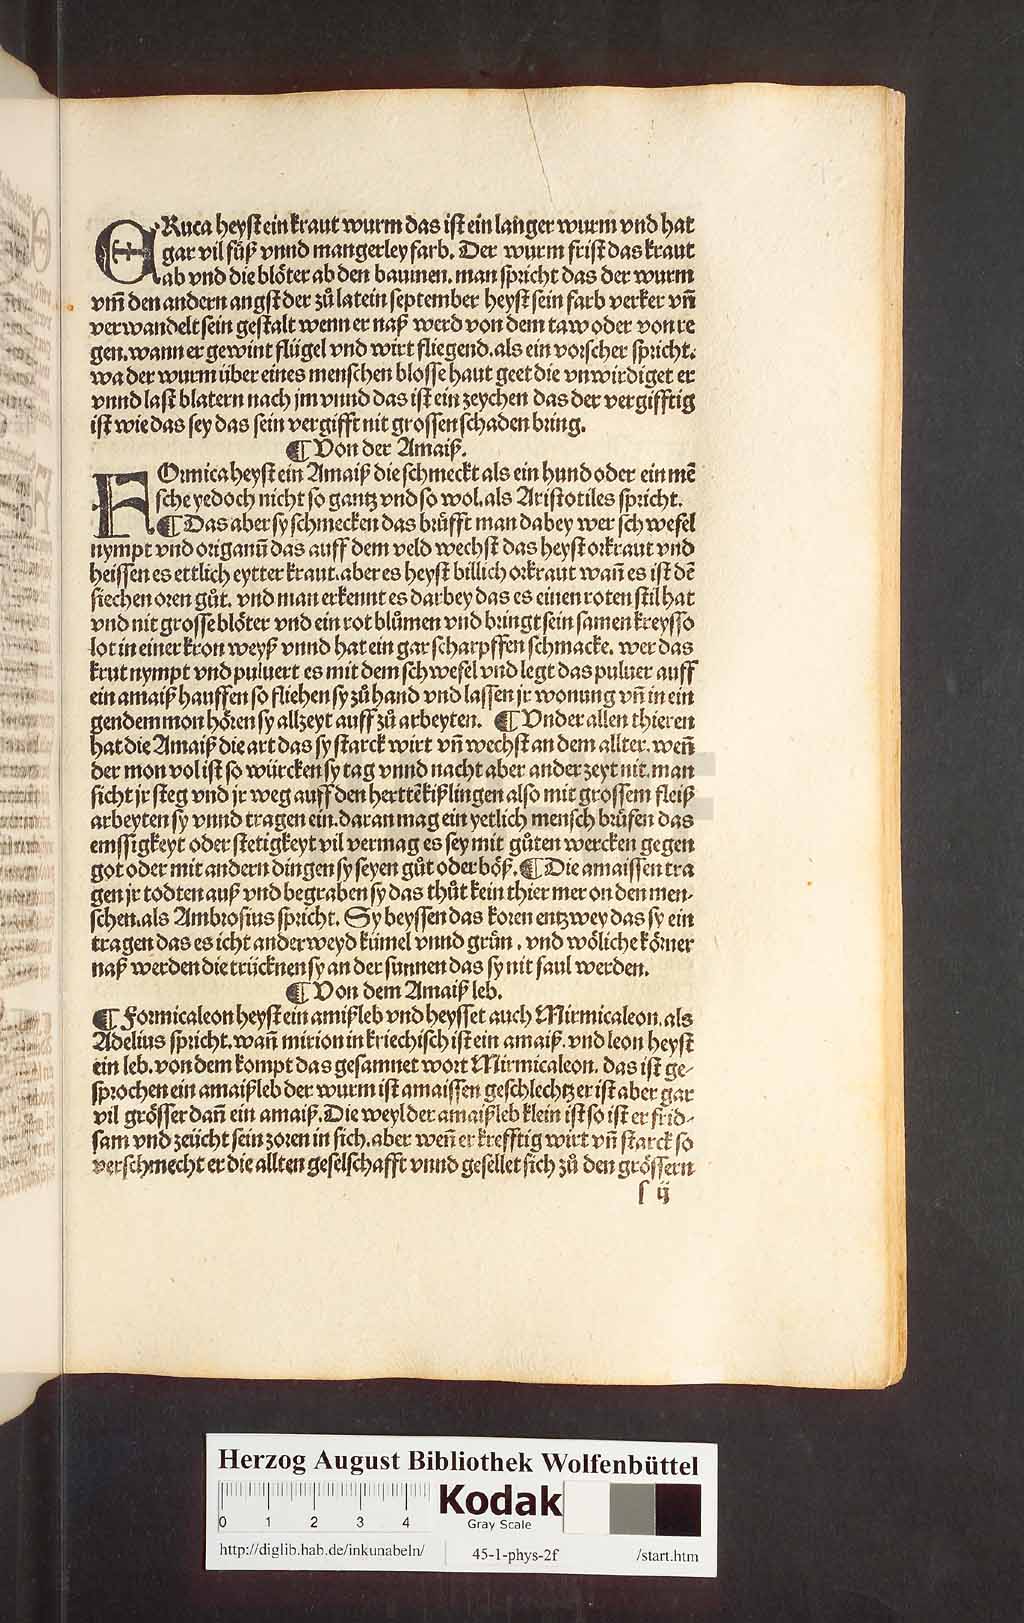 ERuca heyst ein kraut wurm das ist ein langer wurm vnd hat
gar vil füß vnnd mangerley farb. Der wurm frist das kraut
ab vnd die blöter ab den baumen. man spricht das der wurm
vm̃ den andern angst der zů latein september heyst sein farb verker vñ
verwandelt sein gestalt wenn er naß werd von dem taw oder von re
gen. wann er gewint flügel vnd wirt fliegend. als ein vorscher spricht.
wa der wurm über eines menschen blosse haut geet die vnwirdiget er
vnnd last blatern nach jm vnnd das ist ein zeychen das der vergifftig
ist wie das sey das sein vergifft nit grossen schaden bring.
¶ Von der Amaiß.
FOrmica heyst ein Amaiß die schmeckt als ein hund oder ein mē
sche yedoch nicht so gantz vnd so wol. als Aristotiles spricht.
¶ Das aber sy schmecken das brůfft man dabey wer schwefel
nympt vnd origanū das auff dem veld wechst das heyst orkraut vnd
heissen es ettlich eytter kraut. aber es heyst billich orkraut wañ es ist dē
siechen oren gůt. vnd man erkennt es darbey das es einen roten stil hat
vnd nit grosse blöter vnd ein rot blůmen vnd bringt sein samen kreysso
lot in einer kron weyß vnnd hat ein gar scharpffen schmacke. wer das
krut nympt vnd puluert es mit dem schwefel vnd legt das puluer auff
ein amaiß hauffen so fliehen sy zů hand vnd lassen jr wonung vñ in ein
gendem mon hören sy allzeyt auff zů arbeyten. ¶ Vnder allen thieren
hat die Amaiß die art das sy starck wirt vñ wechst an dem allter. weñ
der mon vol ist so würcken sy tag vnnd nacht aber ander zeyt nit. man
sicht jr steg vnd jr weg auff den herttē kißlingen also mit grossem fleiß
arbeyten sy vnnd tragen ein. daran mag ein yetlich mensch brůfen das
emssigkeyt oder stetigkeyt vil vermag es sey mit gůten wercken gegen
got oder mit andern dingen sy seyen gůt oder böß. ¶ Die amaissen tra
gen jr todten auß vnd begraben sy das thůt kein thier mer on den men-
schen. als Ambrosius spricht. Sy beyssen das koren entzwey das sy ein
tragen das es icht anderweyd kümel vnnd grůn. vnd wöliche körner
naß werden die trücknen sy an der sunnen das sy nit faul werden.
¶ Von dem Amaiß leb.
¶ Formicaleon heyst ein amißleb vnd heysset auch Mirmicaleon. als
Adelius spricht. wañ mirion in kriechisch ist ein amaiß. vnd leon heyst
ein leb. von dem kompt das gesamnet wort Mirmicaleon. das ist ge-
sprochen ein amaißleb der wurm ist amaissen geschlechtz er ist aber gar
vil grösser dañ ein amaiß. Die weyl der amaißleb klein ist so ist er frid-
sam vnd zeücht sein zoren in sich. aber weñ er krefftig wirt vñ starck so
verschmecht er die allten geselschafft vnnd gesellet sich zů den grössern
ſ ij
Herzog August Bibliothek Wolfenbüttel
0 1 2 3 4
Kodak
Gray Scale
http://diglib.hab.de/inkunabeln/ 45-1-phys-2f /start.htm